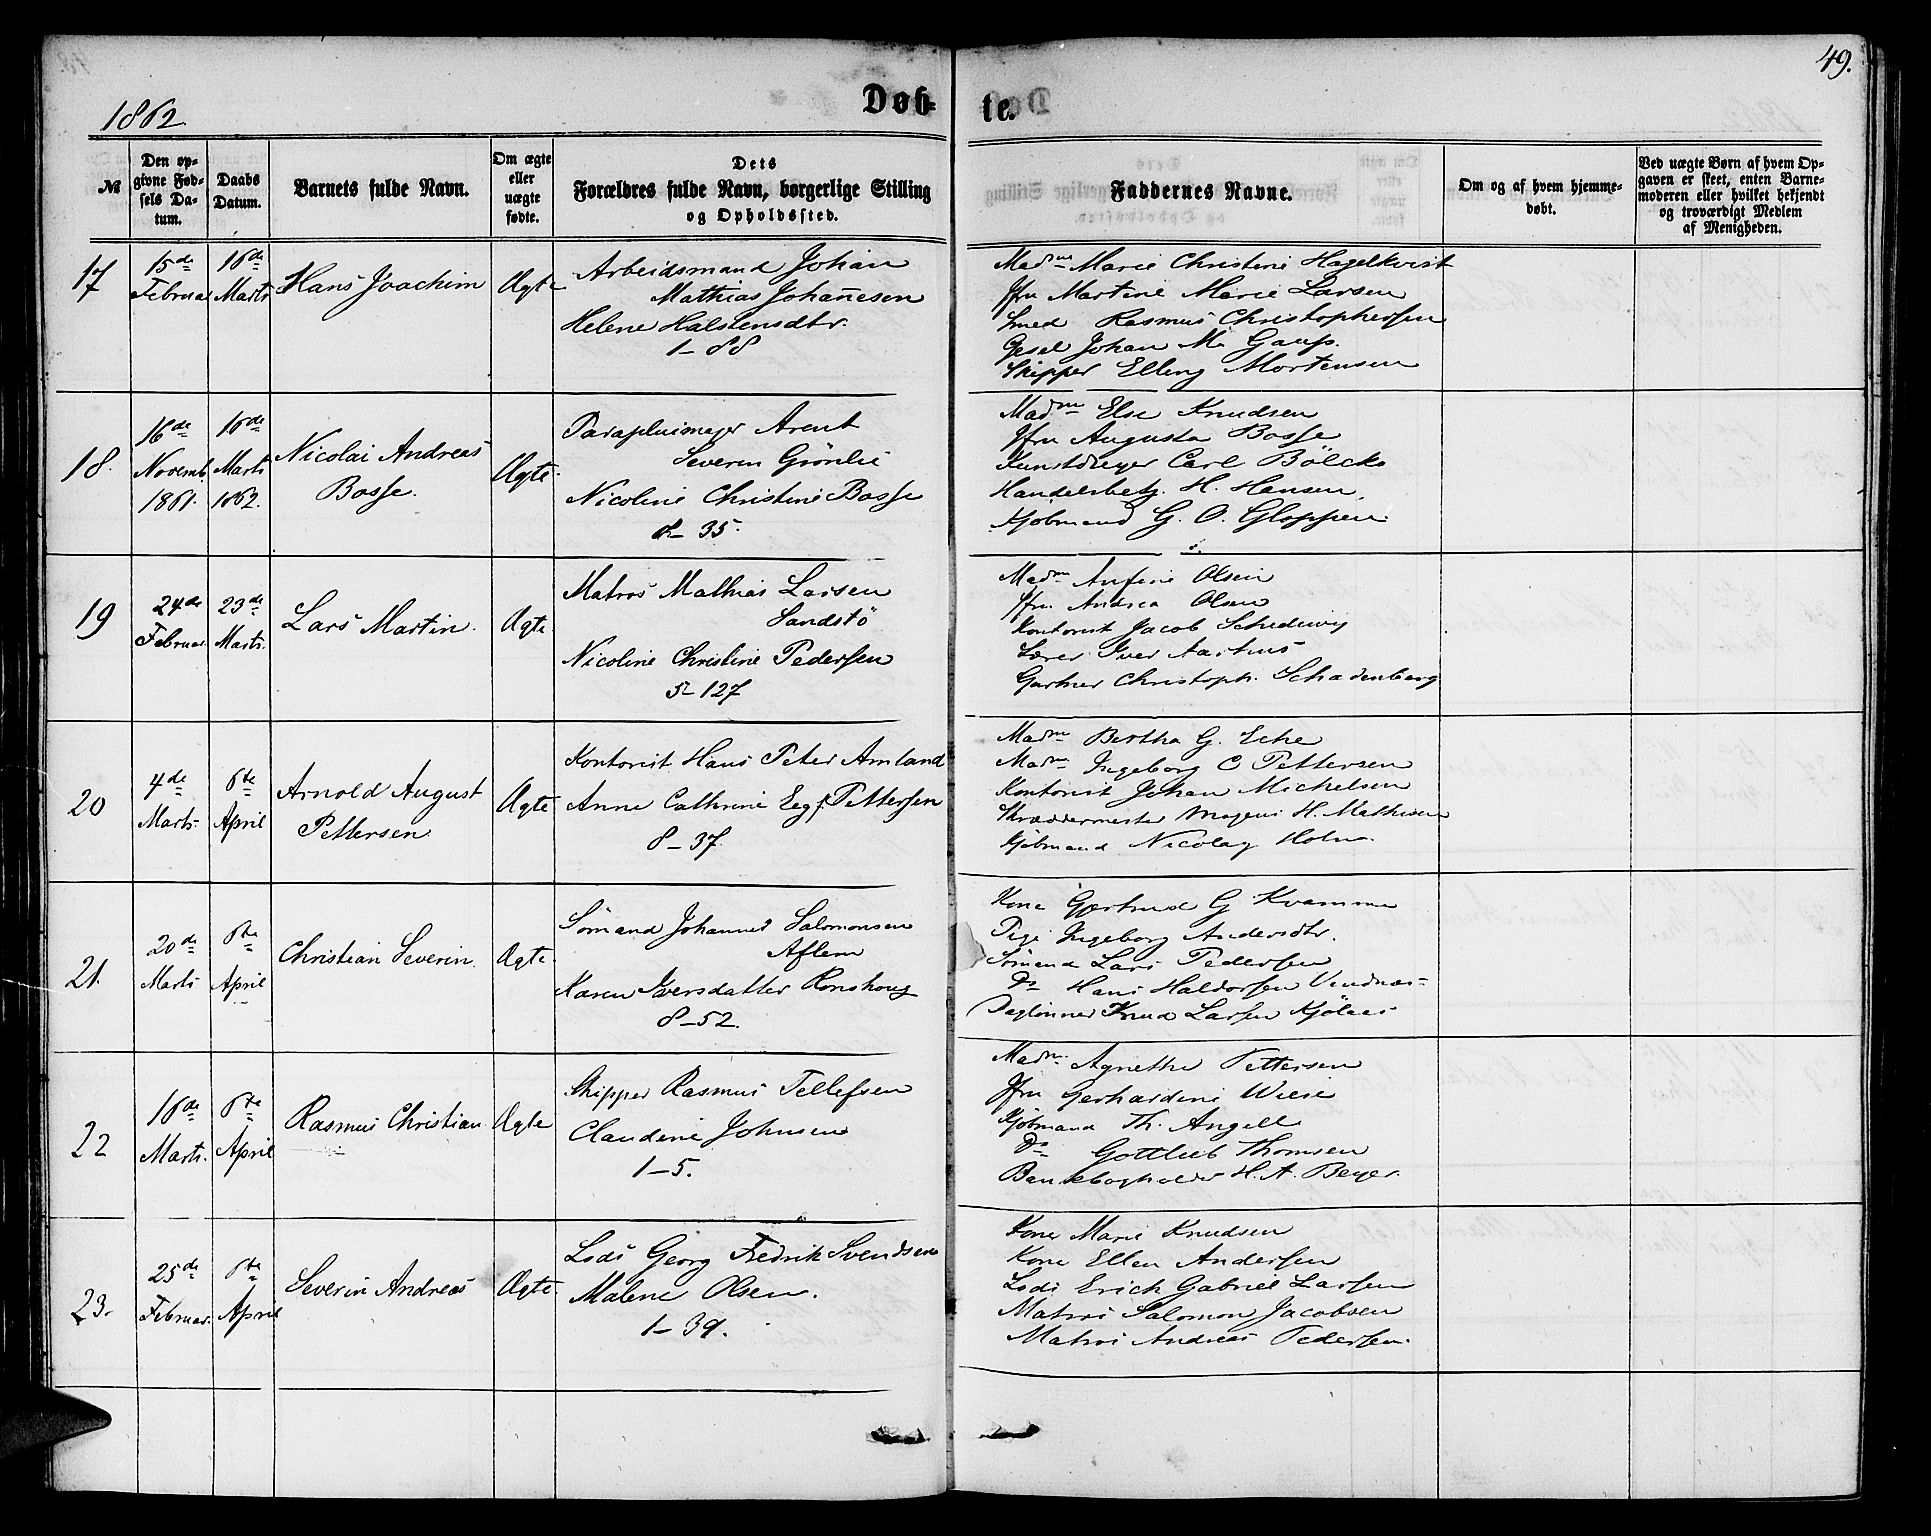 49.
1862.
Døb-
te.
№
Den op-
givne Fød-
sels Da-
tum.
Daabs
Datum.
Barnets fulde Navn.
Om ægte
eller
uægte
fødte.
Dets
Forældres fulde Navn, borgerlige Stilling
og Opholdssted.
Faddernes Navne.
Om og af hvem hjemme-
døbt.
Ved uægte Børn af hvem Op-
gaven er skeet, enten Barne-
moderen eller hvilket bekjendt
og troværdigt Medlem
af Menigheden.
17
15de
Februar
16de
Marts
Hans Joachim
Ægte
Arbeidsmand Johan
Mathias Johanesen
Helene Halstensdtr.
1-88
Madm Marie Christine Hagelkvist
Jfru Martine Marie Larsen
Smed Rasmus Christophersen
Gesel Johan M.
Skipper Elling Mortensen
18.
16de
Novemb.
1861.
16de
Marts
1862.
Nicolai Andreas
Bosse.
Ægte
Parapluimager Arent
Severin Grönlie
Nicoline Christine Bosse
35.
Madm Else Knudsen
Jfru Augusta Bosse
Kunstdreyer Carl Bölcke
Handelsbetj. H. Hansen,
Kjöbmand G. O. Gloppen
19
24de
Februar.
23de
Marts.
Lars Martin.
Ægte.
Matros Mathias Larsen
Sandstö
Nicoline Christine Pedersen
5-127
Madm Olsen
Jfru Andrea Olsen
Kontorist Jacob
Lærer Iver Aarhus
Gartner Christoph. Schadenberg
20
4de
Marts.
6te
April
Arnold August
Pettersen
Ægte
Kontorist Hans Peter Amland
Anne Cathrine Eeg f. Pettersen
8-37.
Madm Bertha G. Eche
Madm Ingeborg C Pettersen
Kontorist Johan Michelsen
Skræddermester Mogens H. Mathisen
Kjöbmand Nicolay Holm.
21.
20de
Marts
6te
April
Christian Severin.
Ægte.
Sömand Johannes Salomonsen
Aflem
Karen Iversdatter Ronshoug
8-52.
Kone Gjertrud G Kvamme
Pige Ingeborg Andersdtr.
Sömand Lars Pedersen
Do Hans Haldorsen
Daglönner Knud Larsen
22
16de
Marts.
6te
April
Rasmus Christian
Ægte
Skipper Rasmus Tellefsen
Claudine Johnsen
1-5.
Madm. Agnethe Pettersen
Jfru Gerhardine Wiese
Kjöbmand Th. Angell
Do Gottlieb Thomsen
Bankebogholder H. A. Beyer.
23.
25de
Februar.
6te
April
Severin Andreas
Ægte.
Lods Georg Fredrik Svendsen
Malene Olsen.
1-39.
Kone Marie Knudsen
Kone Ellen Andersen
Lods Erich Gabriel Larsen
Matros Salomon Jacobsen
Matros Andreas Pedersen.